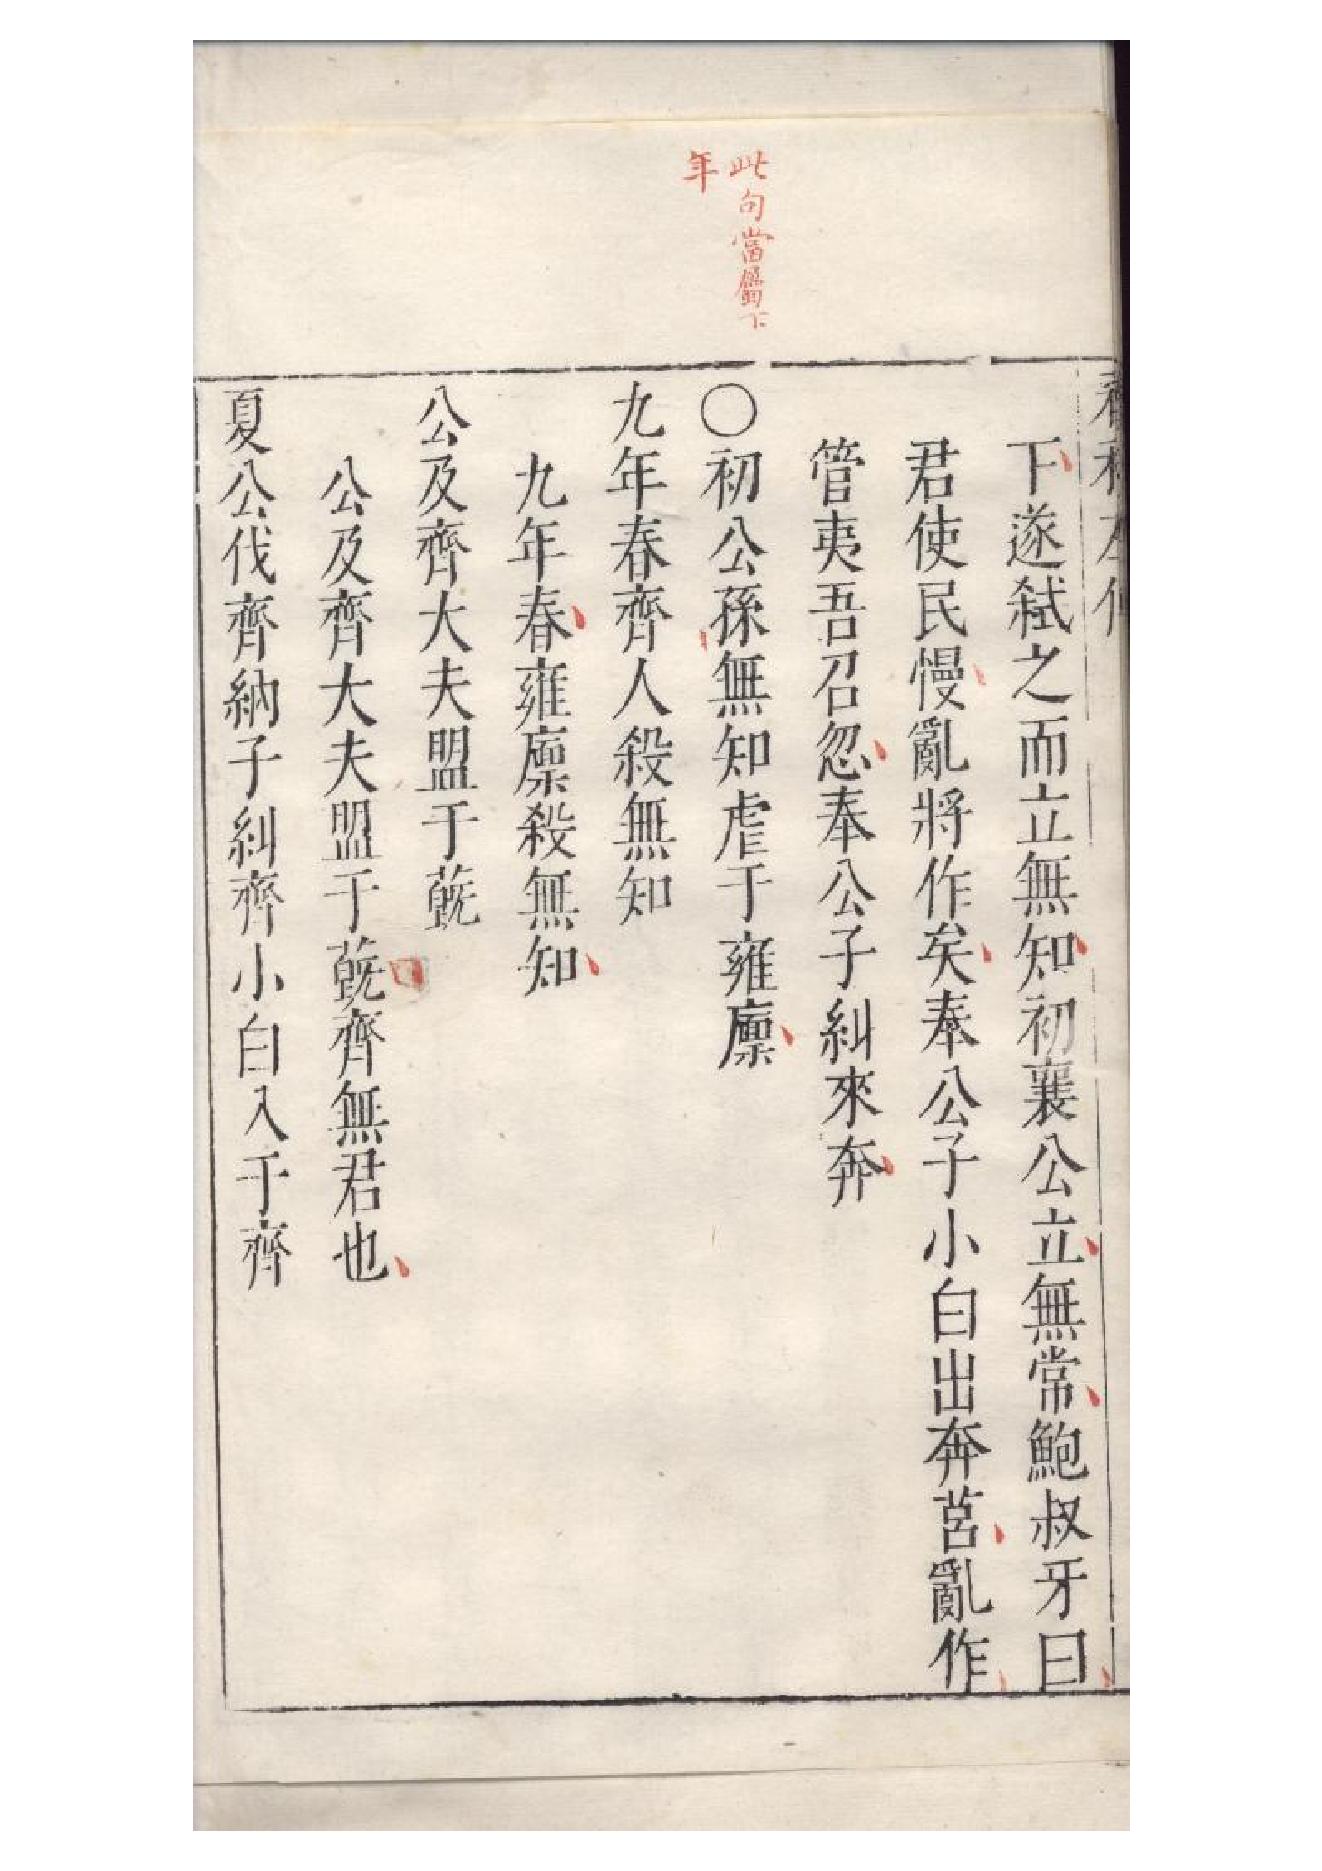 此句當屬下
年
春秋左傳
下遂弑之而立無知初襄公立無常鮑叔牙曰
君使民慢亂將作矣奉公子小白出奔莒亂作
管夷吾召忽奉公子糾來奔
〇初公孫無知虐于雍廩
九年春齊人殺無知
九年春雍廩殺無知
公及齊大夫盟于蔇
公及齊大夫盟于蔇齊無君也
夏公伐齊納子糾齊小白入于齊